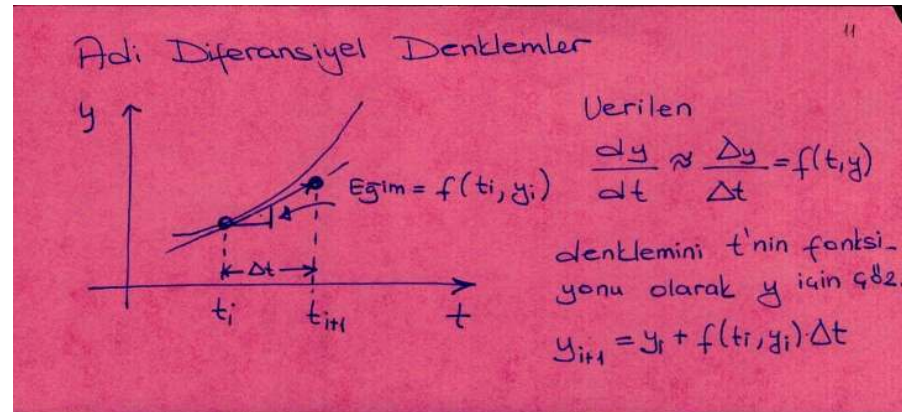 11
Adi Diferansiyel Denklemler
y
Eğim = f(ti, yi)
Δt
ti
ti+1
t
Verilen
dy/dt ≈ Δy/Δt = f(t,y)
denklemini t'nin fonksi-
yonu olarak y için çöz.
yi+1 = yi + f(ti, yi)·Δt